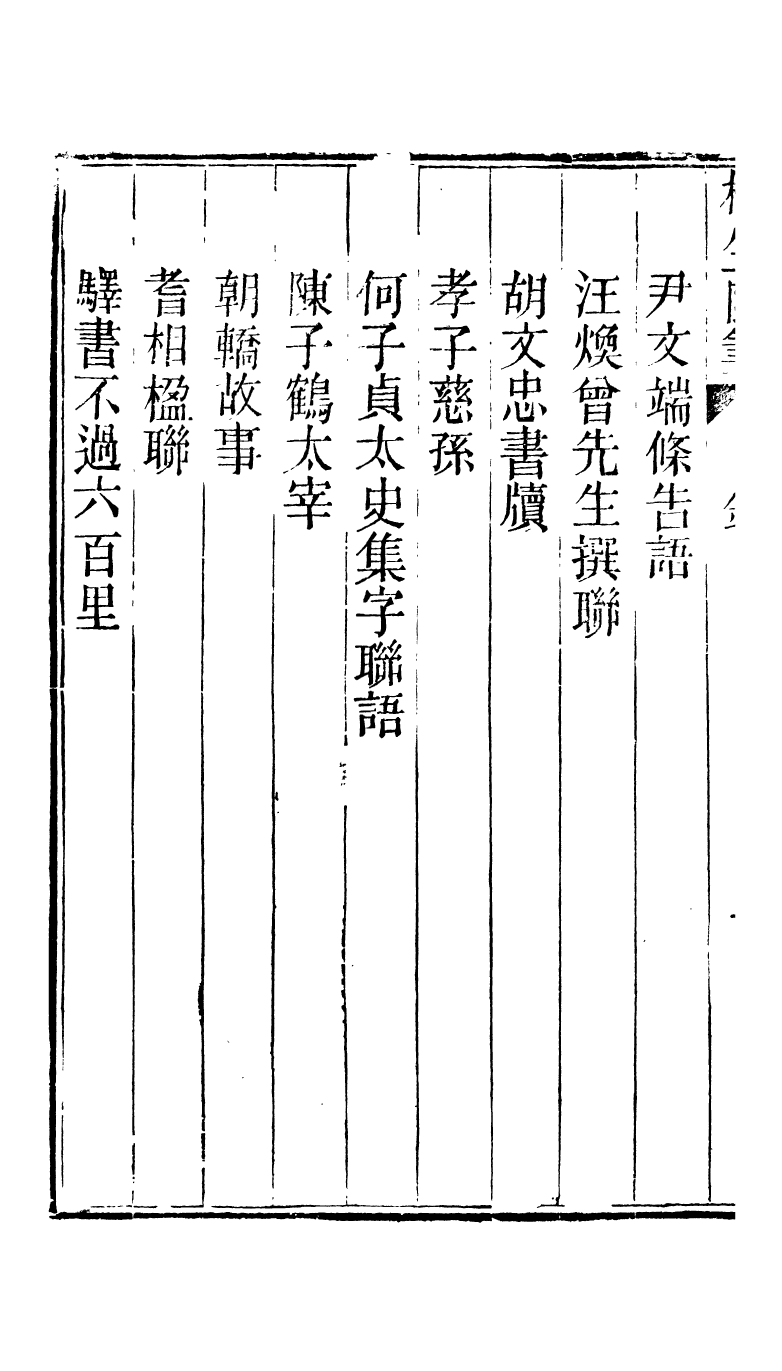 尹文端條告語
汪煥曾先生撰聯
胡文忠書牘
孝子慈孫
何子貞太史集字聯語
陳子鶴太宰
朝轎故事
耆相楹聯
驛書不過六百里